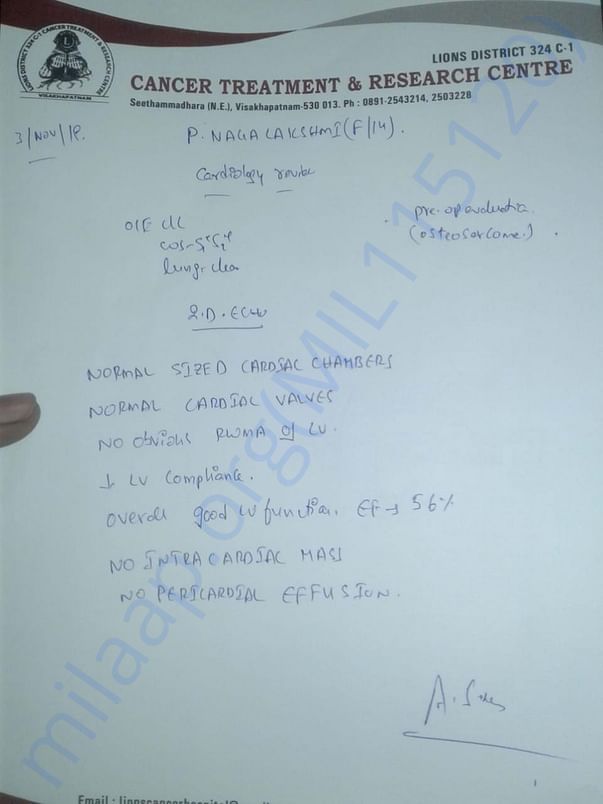 LIONS DISTRICT 324 C-1 CANCER TREATMENT & RESEARCH CENTRE
VISAKHAPATNAM
LIONS DISTRICT 324 C-1
CANCER TREATMENT & RESEARCH CENTRE
Seethammadhara (N.E.), Visakhapatnam-530 013. Ph : 0891-2543214, 2503228
3/NOV/18.
P. NAGA LAKSHMI (F/14).
Cardiology review
pre-op evaluation.
(osteosarcoma.)
O/E
lungs clear
2.D. ECHO
NORMAL SIZED CARDIAC CHAMBERS
NORMAL CARDIAC VALVES
NO obvious RWMA of LV.
↓ LV Compliance.
overall good LV function. EF → 56%
NO INTRACARDIAC MASS
NO PERICARDIAL EFFUSION.
milaap.org(MIL1115120)
Email :